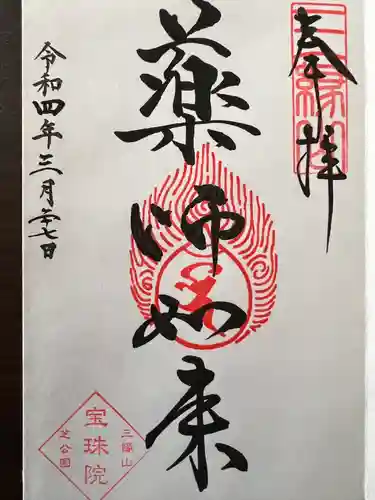 奉拝
三縁山
薬師如来
令和四年三月二十七日
三縁山
宝珠院
芝公園